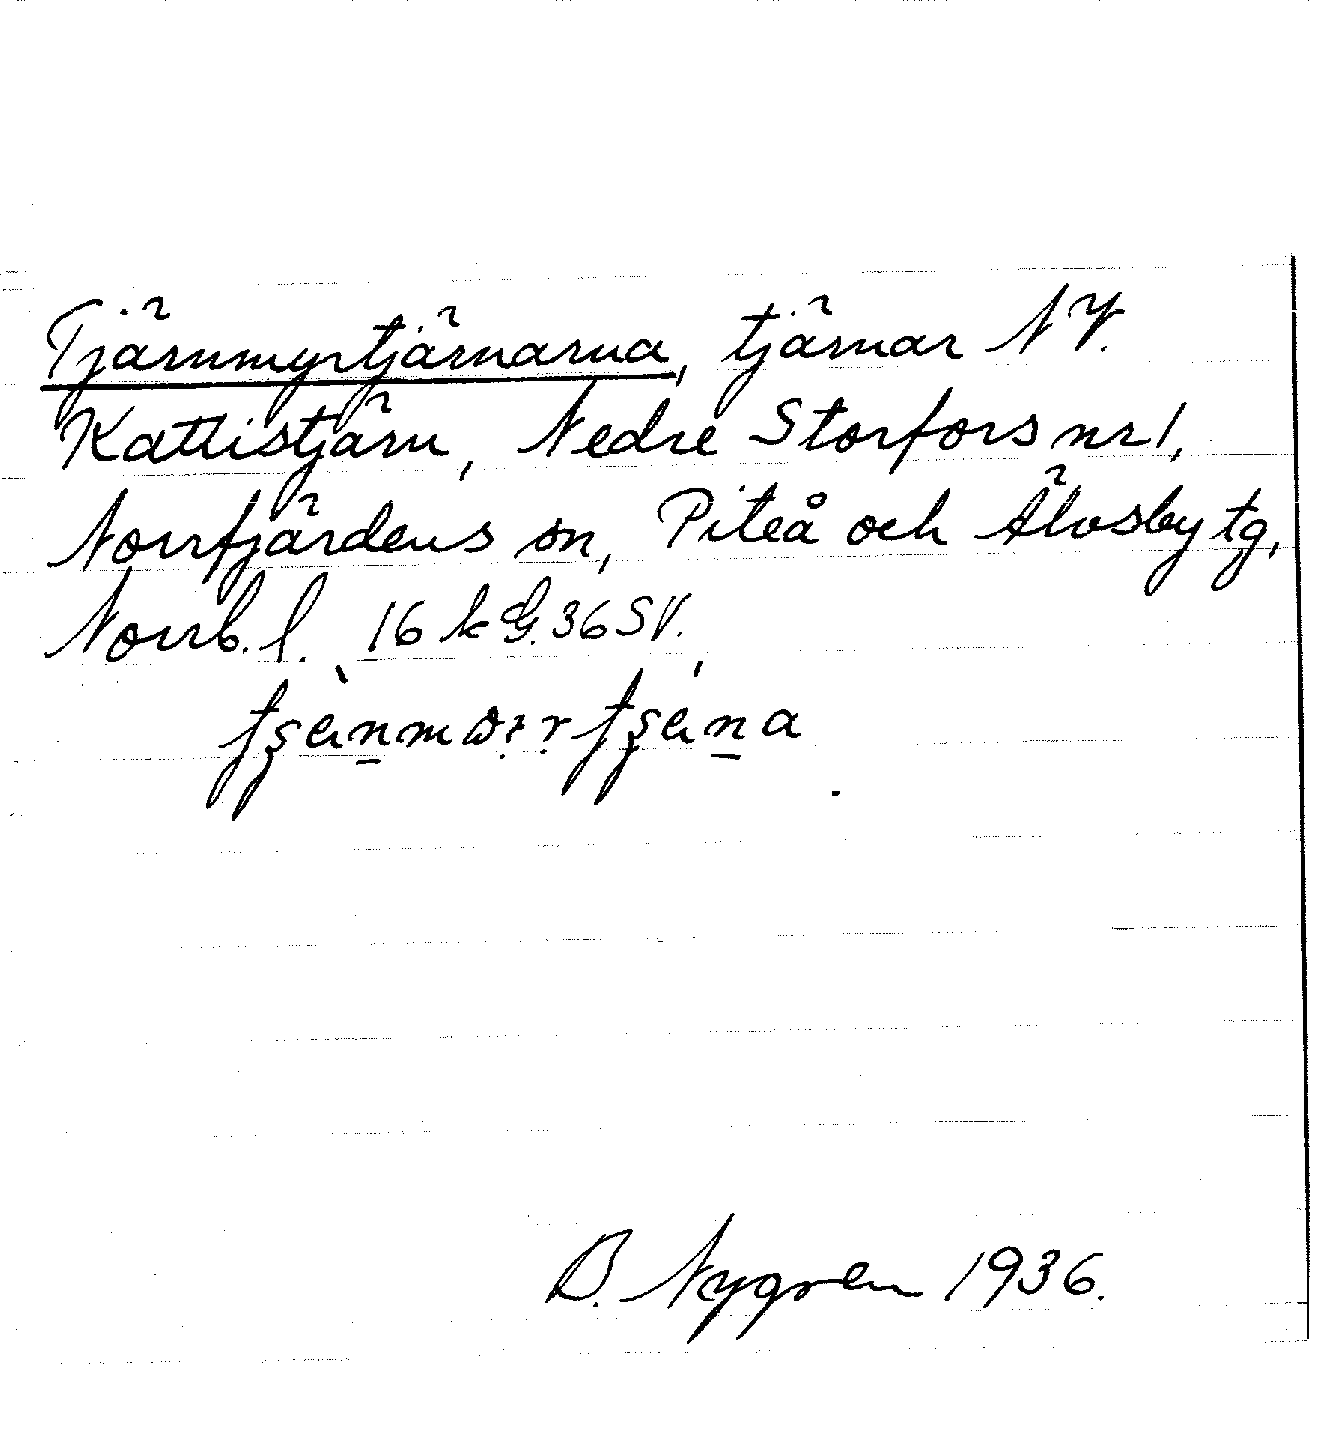 Tjärnmyrtjärnarna, tjärnar NV.
Kattistjärn, Nedre Storfors nr 1,
Norrfjärdens sn, Piteå och Älvsby tg,
Norrb. l. 16 k G. 36 SV.
B. Nygren 1936.